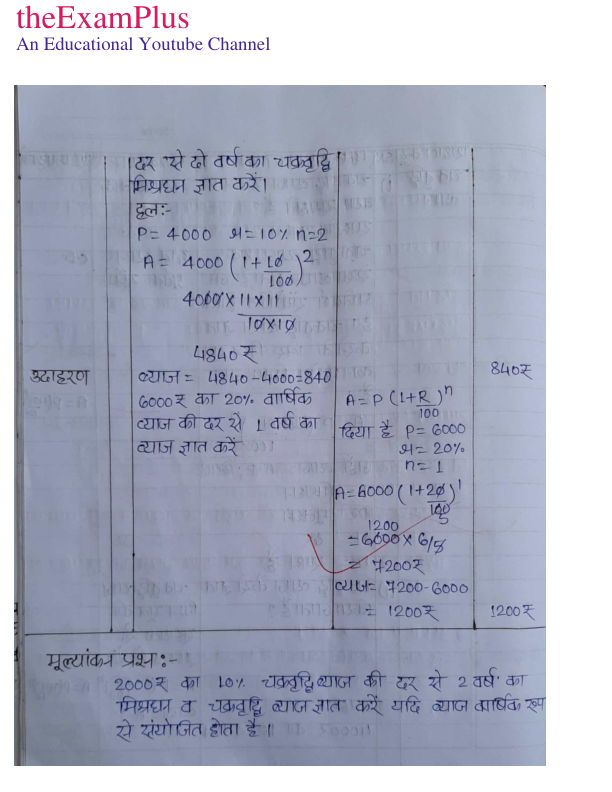 theExamPlus
An Educational Youtube Channel
दर से दो वर्ष का चक्रवृद्धि
मिश्रधन ज्ञात करें।
हल:-
P= 4000 र=10% n=2
A= 4000 (1+10/100)2
4000x11x11/10x10
4840₹
व्याज= 4840-4000=840
840₹
उदाहरण
6000₹ का 20% वार्षिक
व्याज की दर से 1 वर्ष का
व्याज ज्ञात करें
A=P (1+R/100)n
दिया है P= 6000
र= 20%
n= 1
A=6000 (1+20/100)1
5
1200
=6000x6/5
= 7200₹
व्याज= 7200-6000
= 1200₹
1200₹
मूल्यांकन प्रश्न:-
2000₹ का 10% चक्रवृद्धि व्याज की दर से 2 वर्ष का
मिश्रधन व चक्रवृद्धि व्याज ज्ञात करें यदि व्याज वार्षिक रूप
से संयोजित होता है।